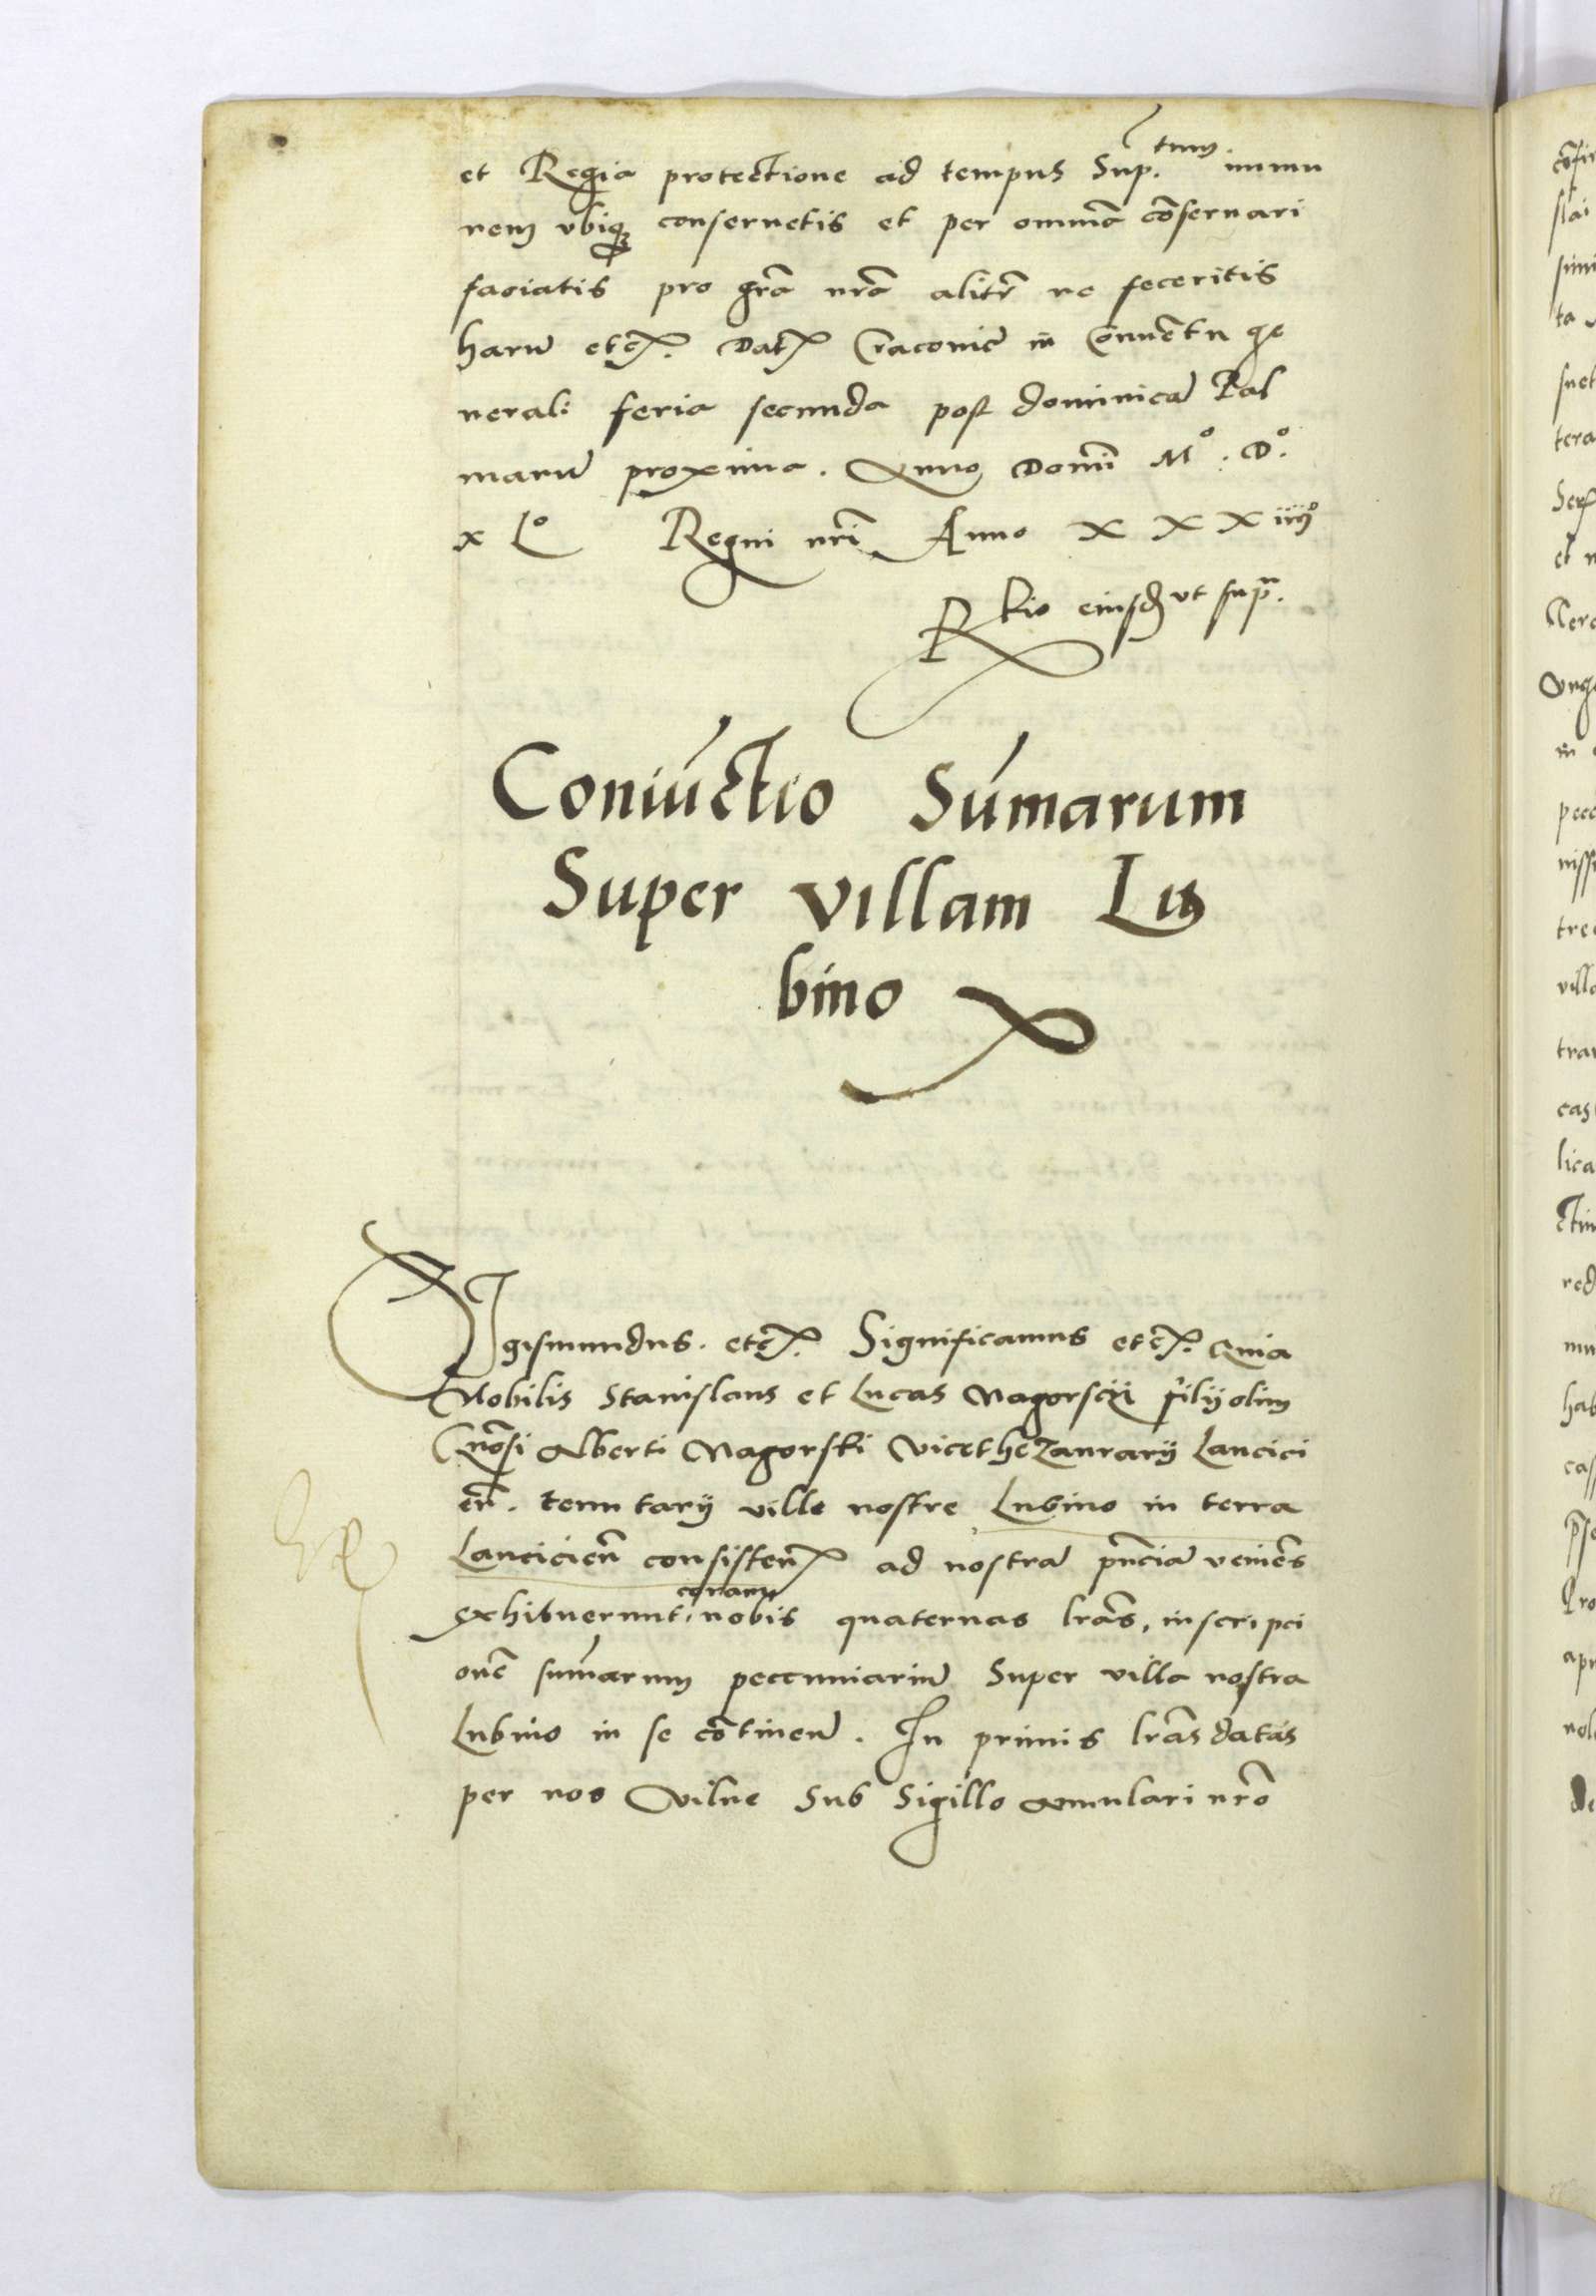 et Regia protectione ad tempus Sup.tum immu
nem vbiq; conseruetis et per omnia cōseruari
faciatis pro gr̄a nr̄a alitr̄ nō feceritis
harū etc̄. Dat̄ Cracouiē in Conuētu ge
nerali feria secunda post dominicā Pal
marū proxima. Anno Domī Mº. Dº.
x Lº Regni nr̄i Anno X X X iiijº
R̄tio eiusd̄ vt supra.
Coniūctio Sūmarum
Super villam Lu
bino
Sigismundus. etc̄. Significamus etc̄. Quia
Nobilis Stanislaus et Lucas Nagorscij filij olim
Gn̄osi Alberti Nagorski Vicethezaurarij Lancici
en̄. tenutarij ville nostre Lubino in terra
Lanciciēn consisten̄ ad nostrā pn̄ciā veniēs
exhibuerunt coram nobis quaternas lr̄as, inscripci
onē sum̄arum pecuniariū Super villa nostra
Lubino in se cōtinen̄. In primis lr̄as datas
per nos Vilne Sub Sigillo Annulari nr̄o